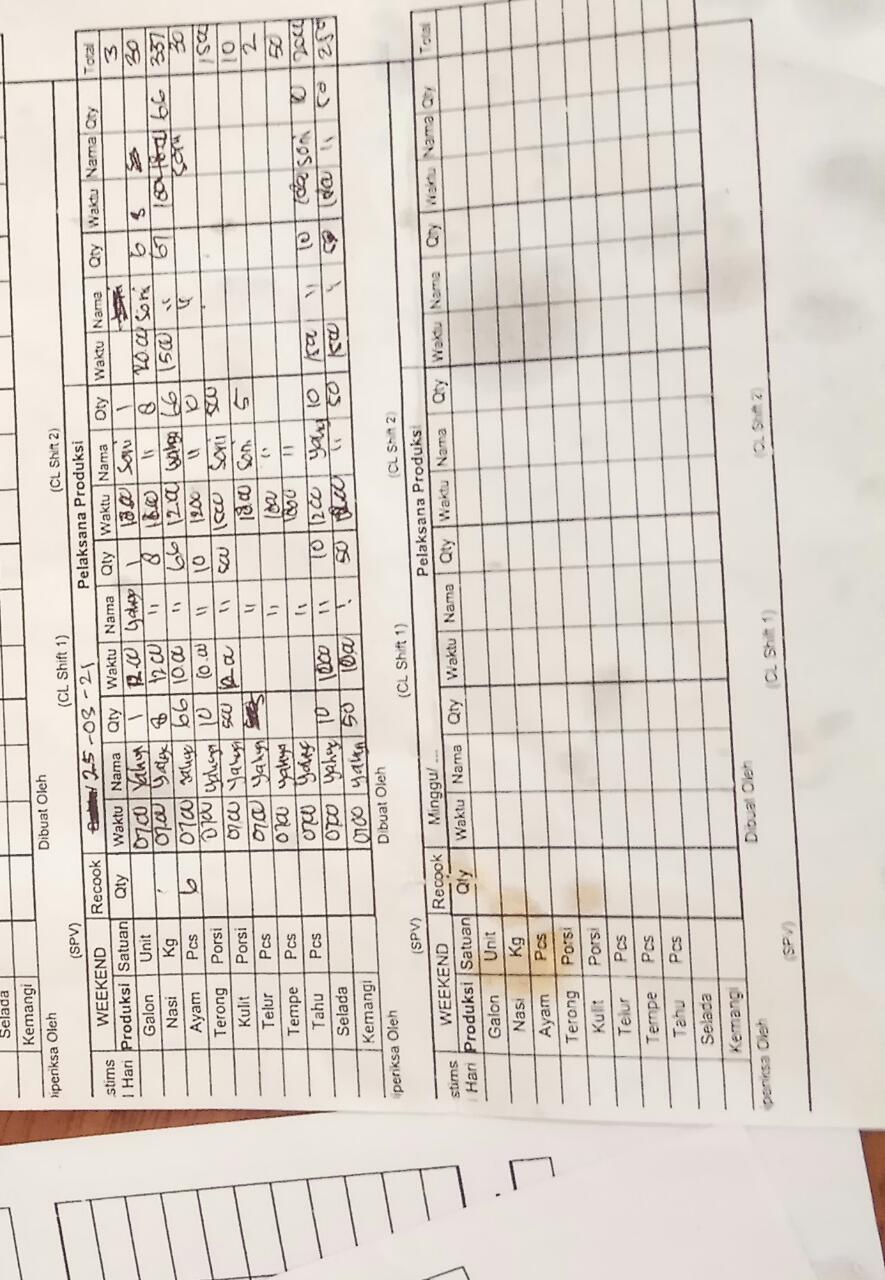 Selada
Kemangi
iperiksa Oleh (SPV) Dibuat Oleh (CL Shift 1) (CL Shift 2)
stims WEEKEND Recook 25-03-21 Pelaksana Produksi Total
l Hari Produksi Satuan Qty Waktu Nama Qty Waktu Nama Qty Waktu Nama Qty Waktu Nama Qty Waktu Nama Qty 3
Galon Unit 0700 Yahya 1 12.00 Yahya 1 18.00 Soni 1 30
Nasi Kg 0700 Yahya 8 12.00 " 8 18.00 " 8 20.00 Soni 6 337
Ayam Pcs 6 0700 Yahya 66 10.00 " 66 12.00 Yahya 66 1500 " 67 1800 66 30
Terong Porsi 0700 Yahya 10 10.00 " 10 1200 " 10 1500
Kulit Porsi 0700 Yahya 500 " 500 1500 Soni 500 10
Telur Pcs 0700 Yahya " 18.00 Soni 5 2
Tempe Pcs 0700 Yahya " 1800 " 50
Tahu Pcs 0700 Yahya " 1800 "
Selada 0700 Yahya 10 1000 " 10 1200 Yahya 10 1500 " 10 Soni 10
Kemangi 0700 Yahya 50 1000 50 " 50 1500 " 50 " 50 250
iperiksa Oleh (SPV) Dibuat Oleh (CL Shift 1) (CL Shift 2)
stims WEEKEND Recook Minggu/ ... Pelaksana Produksi Total
l Hari Produksi Satuan Qty Waktu Nama Qty Waktu Nama Qty Waktu Nama Qty Waktu Nama Qty Waktu Nama Qty
Galon Unit
Nasi Kg
Ayam Pcs
Terong Porsi
Kulit Porsi
Telur Pcs
Tempe Pcs
Tahu Pcs
Selada
Kemangi
iperiksa Oleh (SPV) Dibuat Oleh (CL Shift 1) (CL Shift 2)